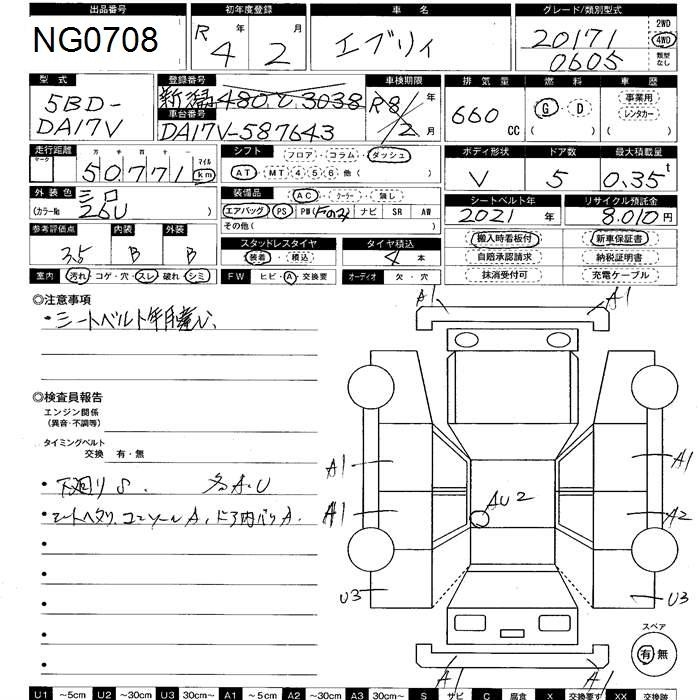 出品番号 初年度登録 車名 グレード/類別型式
NG0708 R 4年 2月 エブリィ 20171 0605 2WD 4WD 類型なし
型式 登録番号 車検期限 排気量 燃料 車歴
5BD-DA17V 新潟480 3038 R8年 2月 660cc G・D ( ) 事業用 レンタカー ( )
車台番号
DA17V-587643
走行距離 マーク 万 千 百 十 一 50,771 マイル km
シフト フロア・コラム・ダッシュ
AT・MT 4 5 6 他 ( )
ボディ形状 ドア数 最大積載量
V 5 0.35t
外装色 シロ
(カラーNo. 26U )
装備品 AC・クーラー・無し
エアバッグ PS PW ナビ SR AW
その他 ( )
シートベルト年 リサイクル預託金
2021年 8,010円
参考評価点 内装 外装
3.5 B B
スタッドレスタイヤ タイヤ積込
装着・積込 4本
搬入時看板付 新車保証書
自賠承認請求 納税証明書
抹消受付可 充電ケーブル
室内 汚れ・コゲ・穴・スレ・破れ・シミ FW ヒビ・A・交換要 オーディオ 欠・穴
◎注意事項
・シートベルト年月
◎検査員報告
エンジン関係
(異音・不調等)
タイミングベルト
交換 有・無
・下廻りS. 各A.U
・シートヘタリ、コンソールA、ドア内バリA.
A1 A1
A1 A1
AU2
A1 A2
U3 U3
A1 A1
スペア
有 無
U1 ~5cm U2 ~30cm U3 30cm~ A1 ~5cm A2 ~30cm A3 30cm~ S サビ C 腐食 X 交換要す XX 交換跡